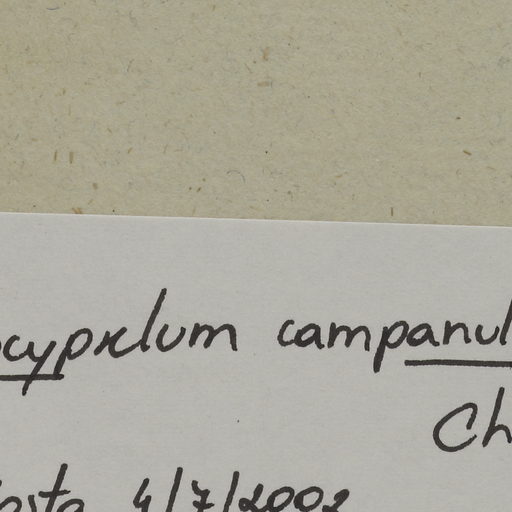 ocyprelum campanul
Ch
osta 4/7/2002